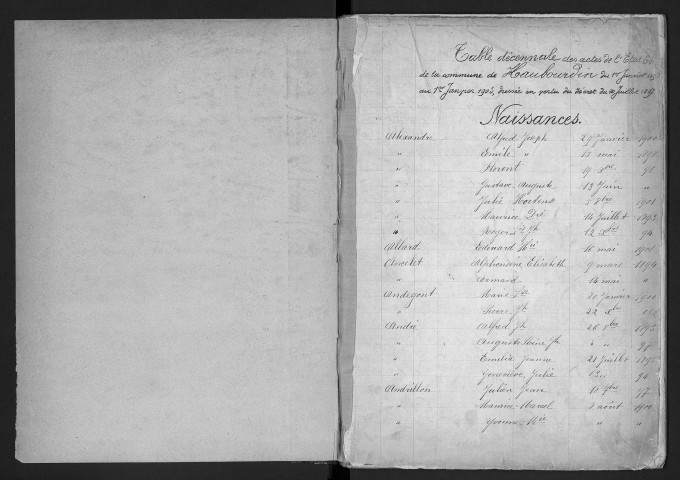 Table décennale des actes de l'Etat
de la commune de Haubourdin du 1er Janvier
au 1er Janvier 1903, dressée en vertu du décret du 20 Juillet 1807
Naissances.
Alexandre Alfred Joseph 29 Janvier 1900
" Emile " 15 mai
" Florent 19 Xbre
" Gustave Auguste 13 Juin "
" Julie Hortense 5 8bre 1901
" Maurice Dré 14 Juillet 1893
" 12 Xbre 94
Allard Edouard 16 mai 1901
Ancelet Alphonsine Elisabeth 9 mars 1894
" Armand 14 mai "
Andegont Marie 20 Janvier 1900
" Pierre Jh 22 Xbre
André Alfred Jh 26 1895
" Auguste " " 98
" Emilia Jeanne 21 Juillet 1895
" Geneviève Julie 94
Andrillon Julien Jean 97
" Maurice Marcel août 1900
" Yvonne " "